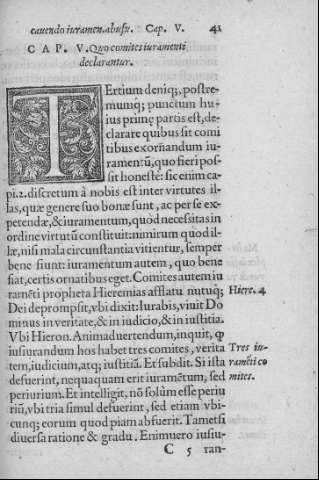 cauendo iuramen.abusu. Cap. V. 41
CAP. V. Quo comites iuramenti
declarantur.
TErtium deniq;, postre-
mumq; punctum hu-
ius primę partis est, de-
clarare quibus sit comi
tibus exorñandum iu-
ramentũ, quo fieri pos-
sit honestè: sic enim ca-
pi.2. discretum à nobis est inter virtutes il-
las, quæ genere suo bonæ sunt, ac per se ex-
petendæ, & iuramentum, quòd necessitas in
ordine virtutũ constituit: nimirum quòd il-
læ, nisi mala circunstantia vitientur, semper
bene fiunt: iuramentum autem, quo bene
fiat, certis ornatibus eget. Comites autem iu
ramẽti propheta Hieremias afflatu nutuq; Hiere. 4
Dei deprompsit, vbi dixit: Iurabis, viuit Do
minus in veritate, & in iudicio, & in iustitia.
Vbi Hieron. Animaduertendum, inquit, ꝙ
iusiurandum hos habet tres comites, verita Tres iu-
tem, iudicium, atq; iustitiã. Et subdit. Si ista ramẽti co
defuerint, nequaquam erit iuramẽtum, sed mites.
periurium. Et intelligit, nõ solùm esse periu
riũ, vbi tria simul defuerint, sed etiam vbi-
cunq; eorum quodpiam abfuerit. Tametsi
diuersa ratione & gradu. Enimuero iusiu-
C 5 ran-